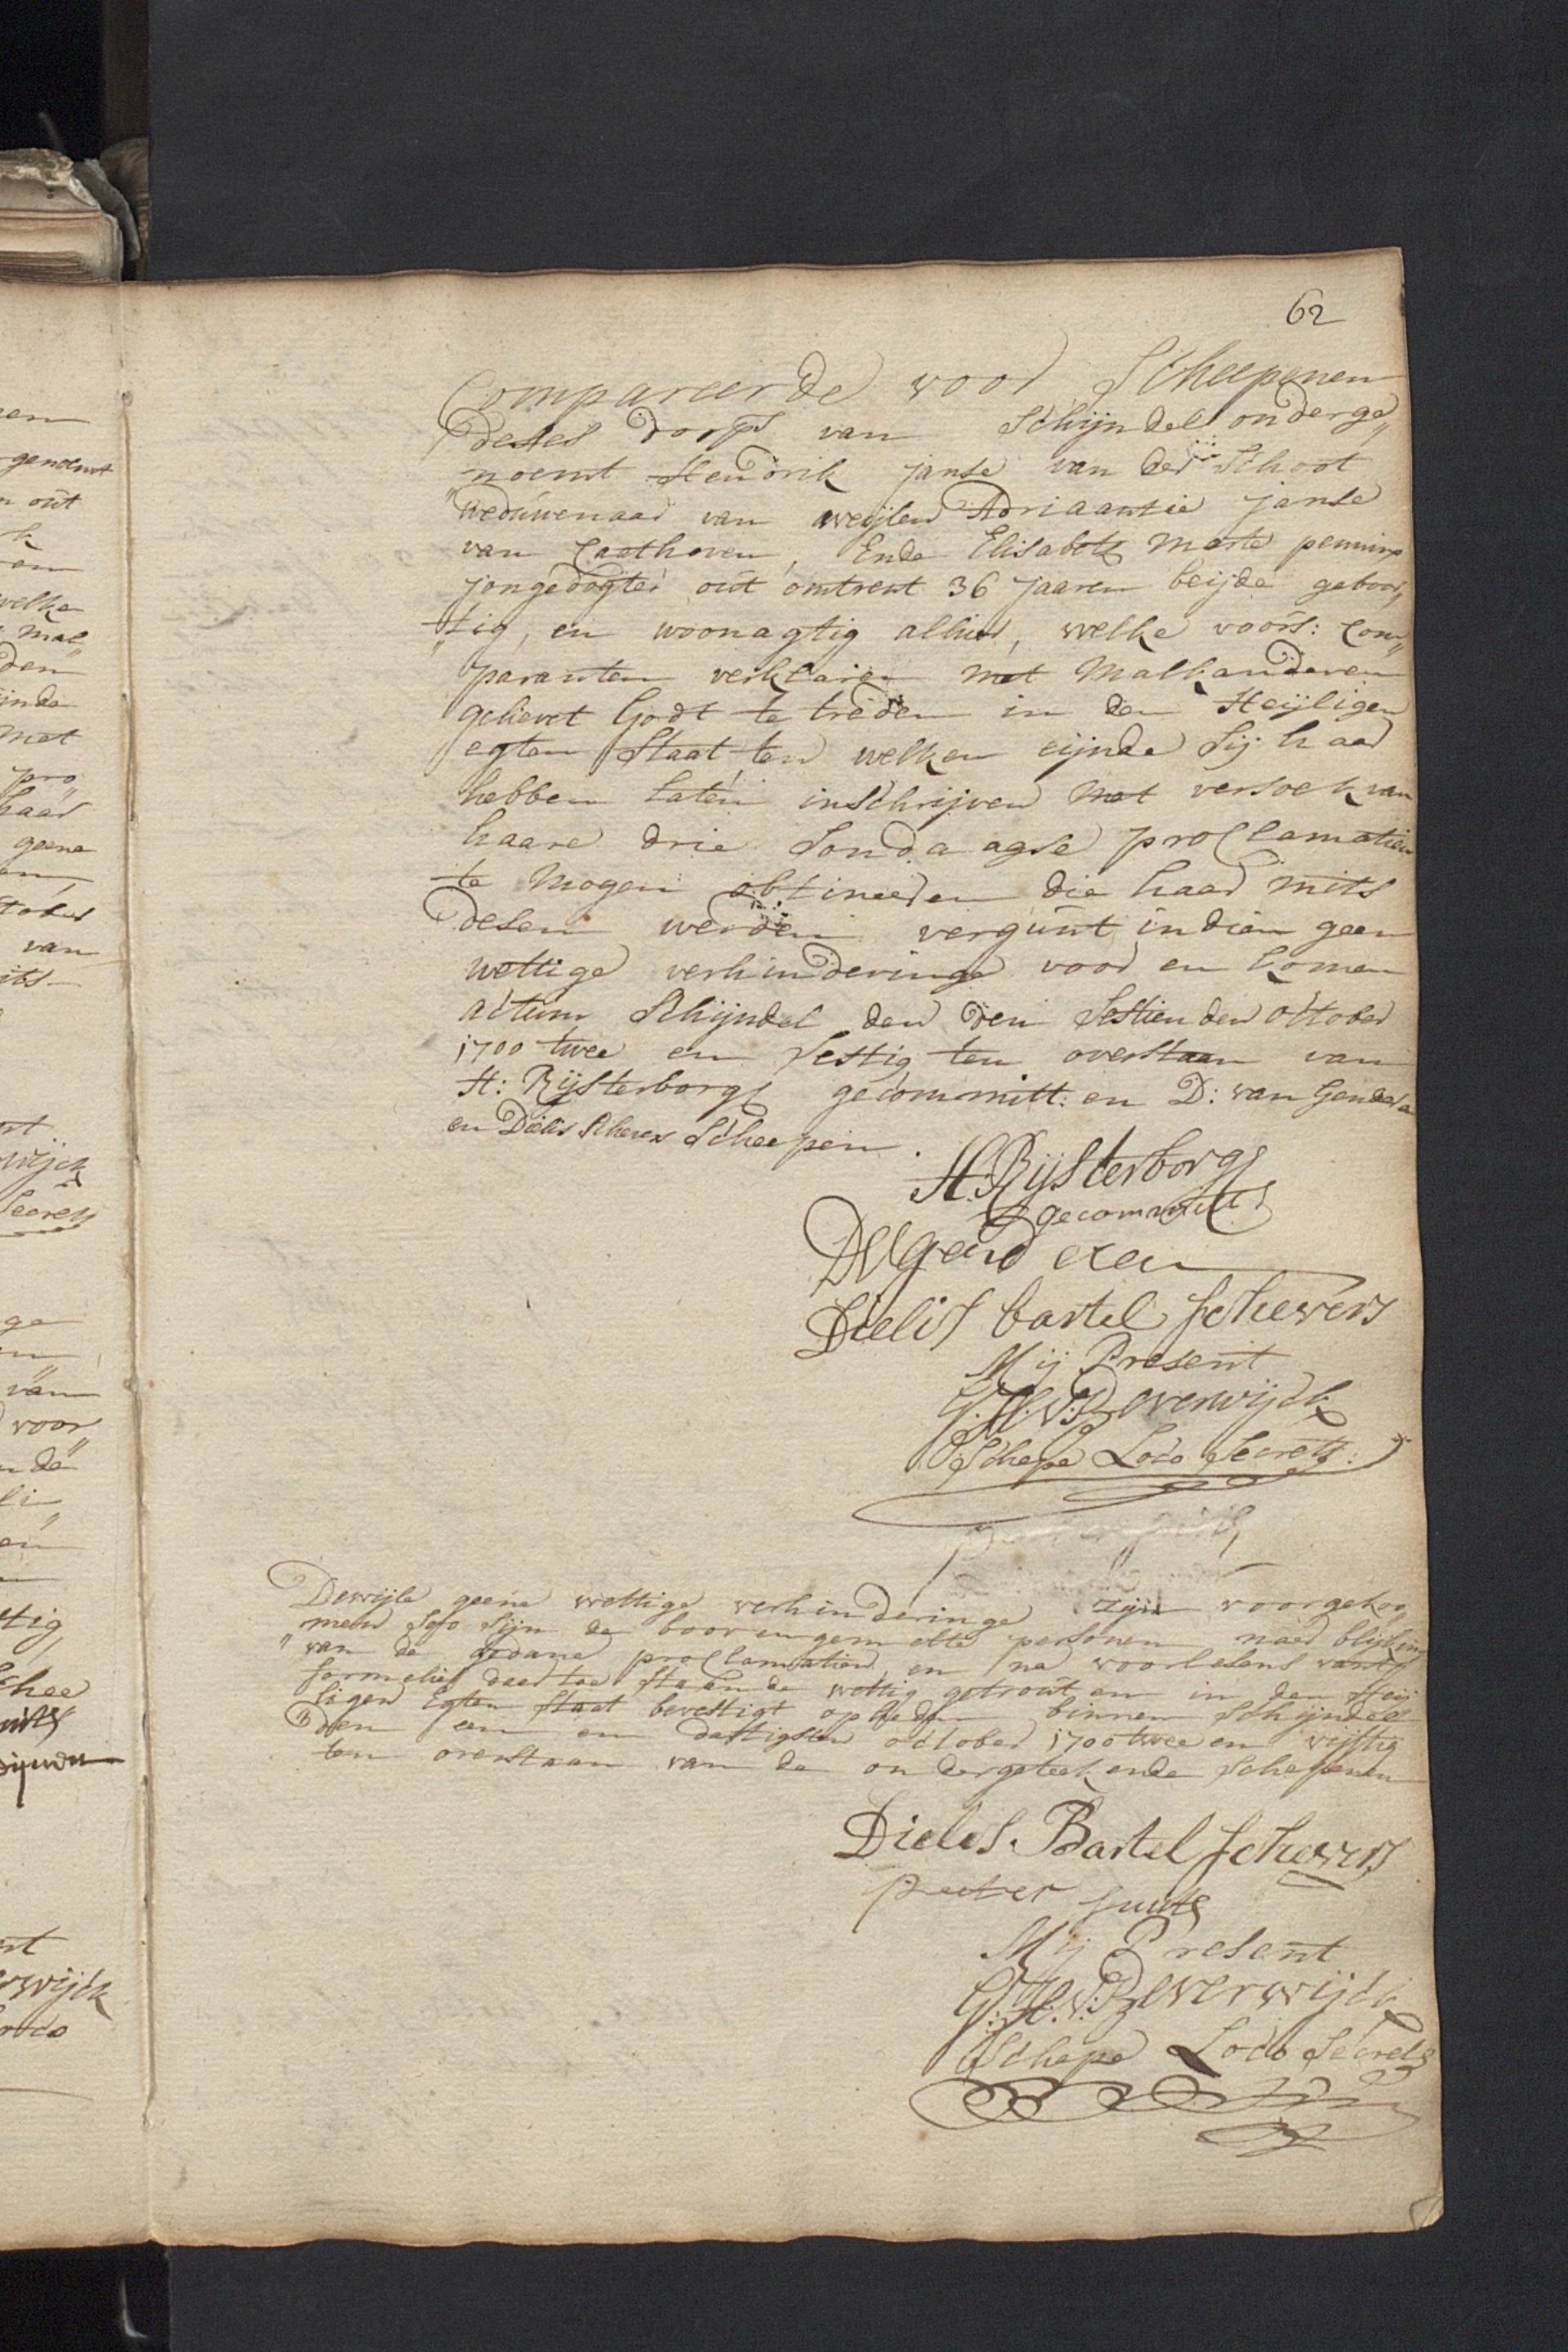 62
Compareerde voor Scheepenen
deses dorps van Schijndel onderge„
noemt Hendrik Janse van der Schoot
weduwenaar van weijlen Adriaantie Janse
van Casthoren, Ende Elisabeth Marte pennings
jongedogter out omtrent 36 Jaaren beijde geboor„
„tig, en woonagtig alhier, welke voors: Com„
paranten verklaren met Malkanderen
gelievet Godt te treden in den Heijligen
egten Staat ten welken eijnde Sij haar
hebben laten inschrijven met versoek van
haare drie Sondaagse proclamatien
te mogen obtineeren die haar mits
desen werden vergunt indien geen
wettige verhinderinge voor en komen
actum Schijndel den den Sestienden October
1700 twee en Sestig ten overstaan van
H: Rijsterborg gecommitt: en D: van Genderen
en Dielis Schevers Scheepen.
H: Rijsterborg
gecommitt
DVGenderen
Dielis bartel schevers
Mij Present
G: H: V: Beverwijck
Schepe Loco Secrets:
Dewijle geene wettige verhinderinge zijn voorgekoo„
men Soo Sijn de bovengemelte personen naer blijken
van de gedane proclamatien, en na voorlesens van't
formelier daertoe staande wettig getrout en in den Heij
ligen Egten Staat bevestigt op heden binnen Schijndel
den een en dertigsten october 1700 twee en vijftig
ten overstaan van de ondergeteekende Schepenen
Dielis Bartel schevers
Peeter smits
Mij Present
G: H: V: Beverwijck
Schepe Loco Secrets